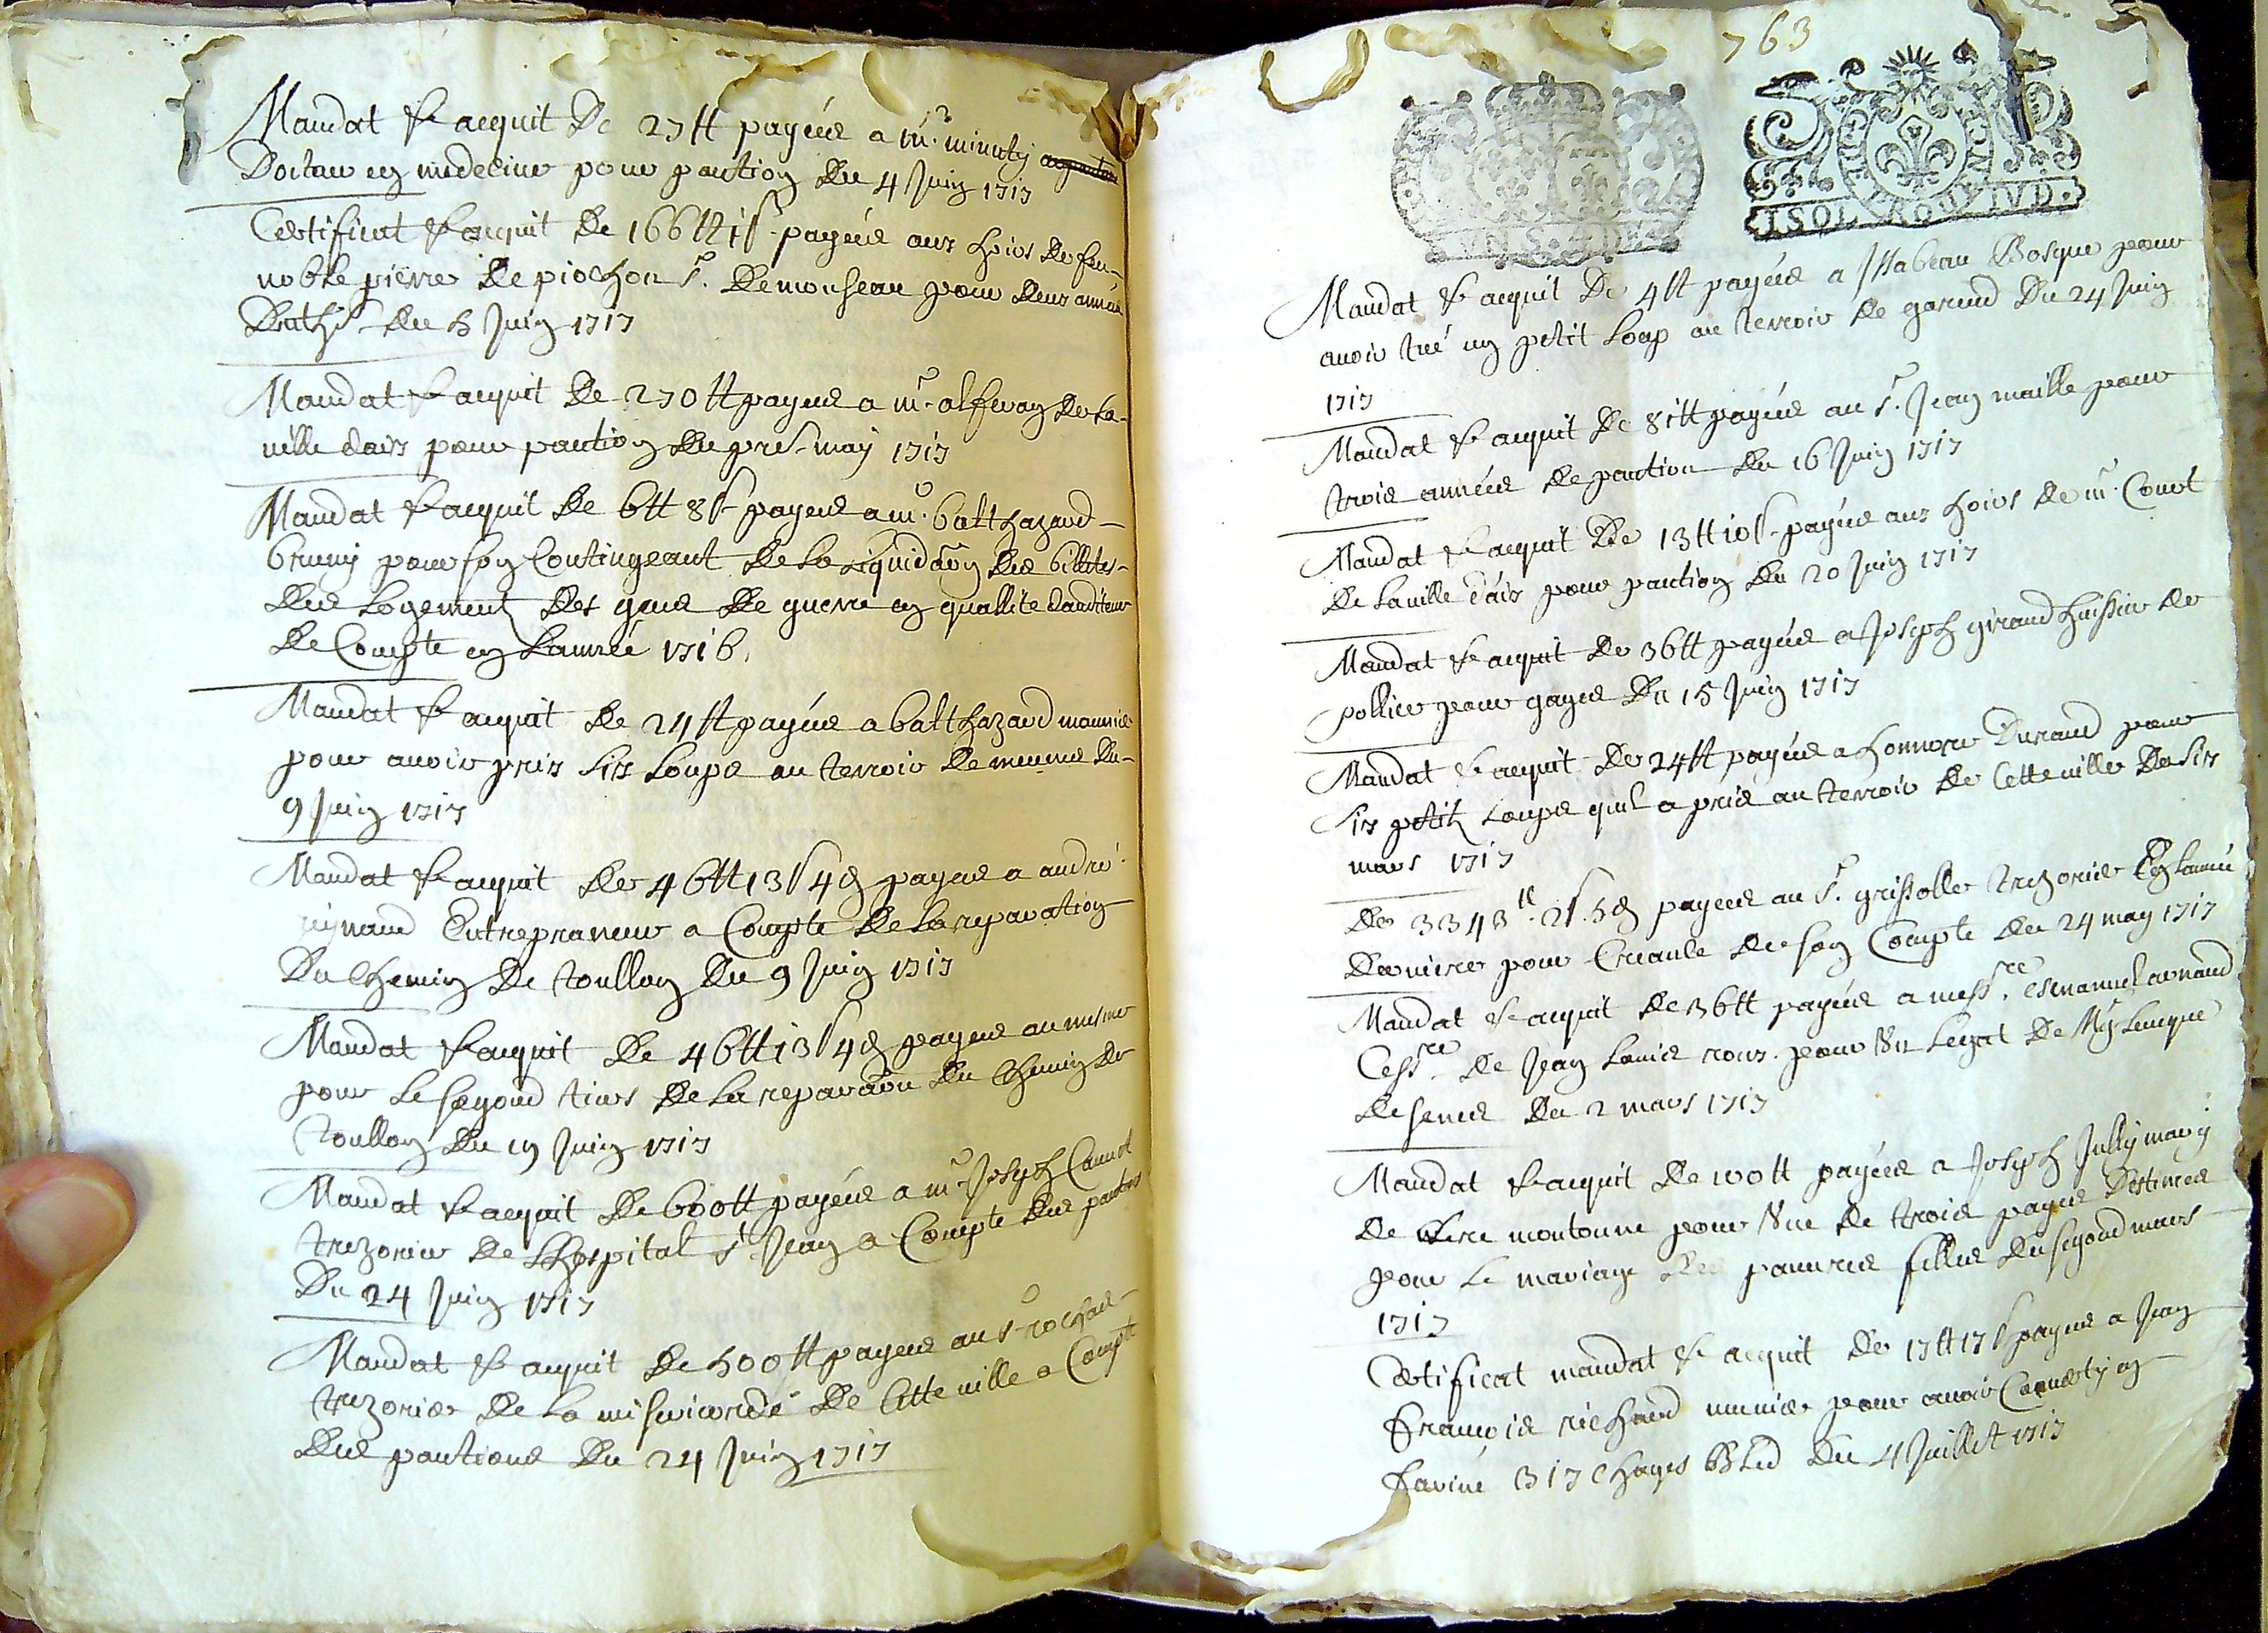 Mandat & acquit De 27 ℔ payées a mr. minuty
Docteur en medecine pour pention Du 4 Juin 1717
Certificat & acquit De 166 ℔ 1 s payées aux hoirs De feu
noble pierre De piochon sr. De monseau pour Deux années
Du 5 Juin 1717
Mandat & acquit De 270 ℔ payees a mr. alferan De la
ville daix pour pention Du pre. may 1717
Mandat & acquit De 6 ℔ 8 s payees a mr. balthazard
bruny pour son Contingeant De la liquidaon Des billetes
Des Logement Des gens De guerre en quallité dauditeur
De Compte en Lannée 1716.
Mandat & acquit De 24 ℔ payées a balthazard mounier
pour avoir pris six Loups au terroir De meunes Du
9 Juin 1717
Mandat & acquit De 46 ℔ 13 s 4 d payees a andré
reynaud Entrepraneur a Compte De la reparation
Du Chemin De toullon Du 9 Juin 1717
Mandat & acquit De 46 ℔ 13 s 4 d payees au mesme
pour Le segond tiers De La reparaõn Du Chemin De
toullon Du 19 Juin 1717
Mandat & acquit De 600 ℔ payées a mr. Joseph Cauvet
trezorier De Lhospital st. Jean a Compte Des pentions
Du 24 Juin 1717
Mandat & acquit De 500 ℔ payees au sr. rochas
trezorier De La misericorde De Cette ville a Compte
Des pentions Du 24 Juin 1717
763
ISOL ROD IVD.
Mandat & acquit De 4 ℔ payées a Issabeau Bosque pour
avoir tué un petit Loup au terroir De gareud Du 24 Juin
1717
Mandat & acquit De 81 ℔ payées au sr. Jean maille pour
trois années De pention Du 16 Juin 1717
Mandat & acquit De 13 ℔ 10 s payées aux hoirs De mr. Couet
De la ville d'aix pour pention Du 20 Juin 1717
Mandat & acquit De 36 ℔ payées a Joseph giraud huissier De
pollice pour gages Du 15 Juin 1717
Mandat & acquit De 24 ℔ payées a honnore Durand pour
six petits Loups quil a pris au terroir De Cette ville Du six
mars 1717
De 3343 ℔. 2 s. 5 d payees au sr. grissolle trezorier En Lannée
Derniere pour Creance De son Compte Du 24 may 1717
Mandat & acquit De 36 ℔ payées a messre. esmanuel arnaud
Cessre. De Jean Louis roux. pour Un Legat De Mgr Leveque
De senes Du 2 mars 1717
Mandat & acquit De 100 ℔ payées a Joseph Jully mary
De Clere montonne pour Une De trois payes Destinées
pour Le mariage Des pauvres filles Du segond mars
1717
Certificat mandat & acquit De 17 ℔ 17 s payees a Jean
François richard munier pour avoir Converty en
farine 317 Charges Bled Du 4 Juillet 1717